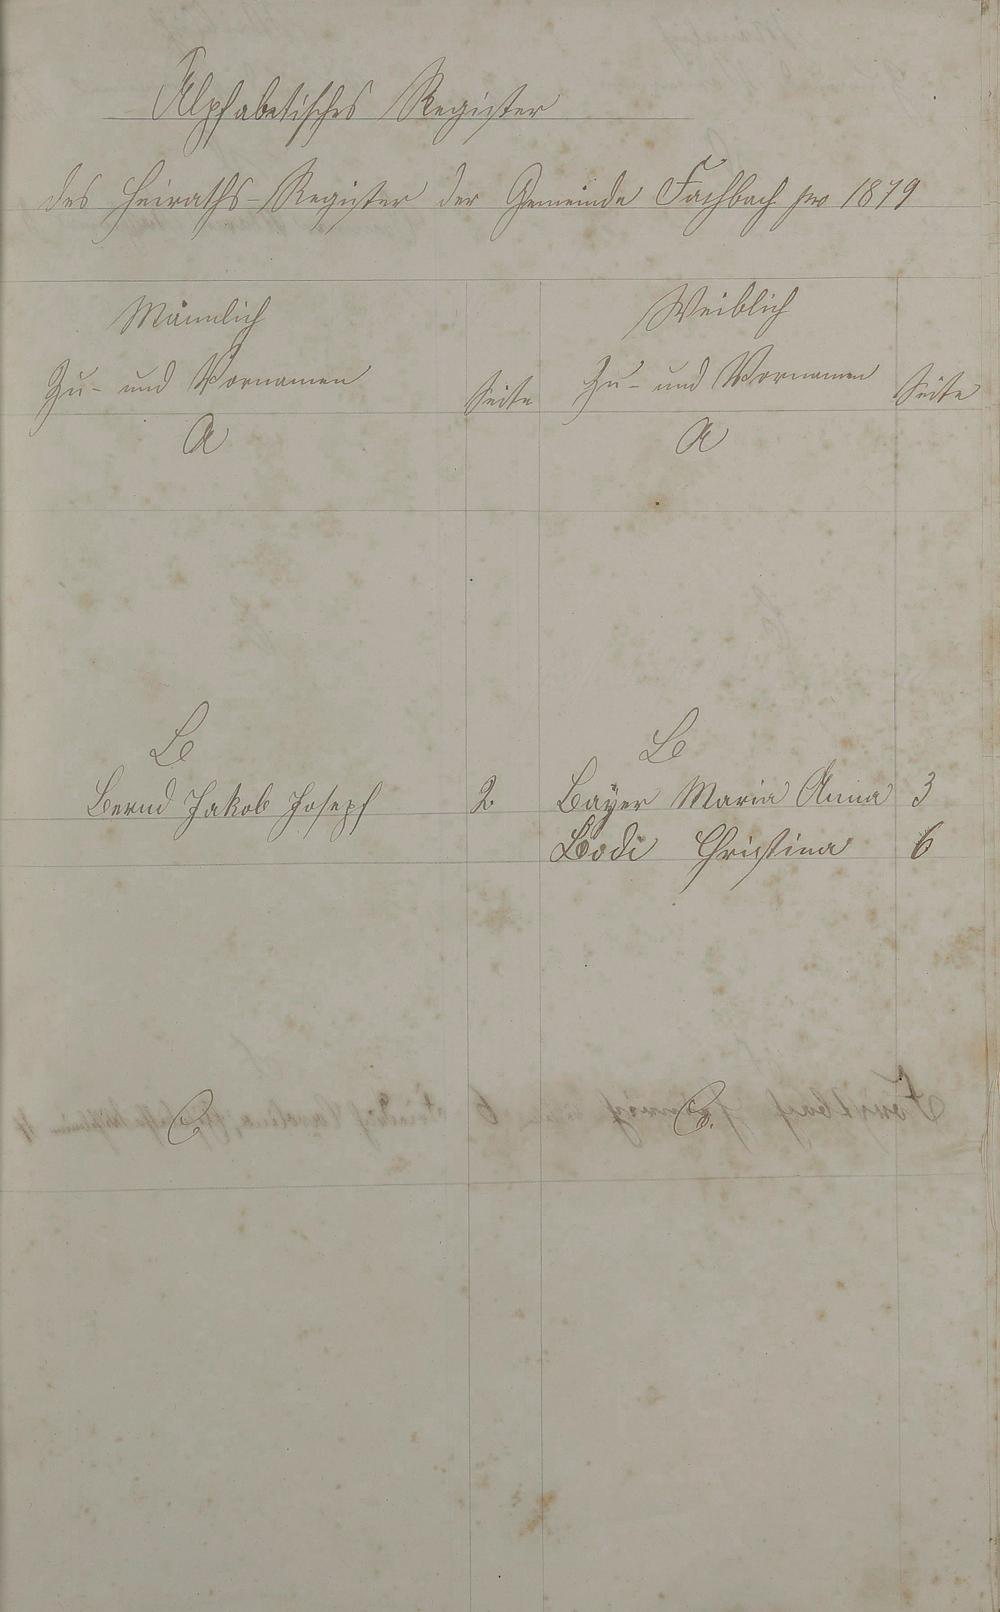 Alphabetisches Register
des Heiraths-Register der Gemeinde Fachbach pro 1879
Männlich Weiblich
Zu- und Vornamen Seite Zu- und Vornamen Seite
A A
B B
Bernd Jakob Joseph 2. Bayer Maria Anna 3
Bodi Christina 6
C. C.